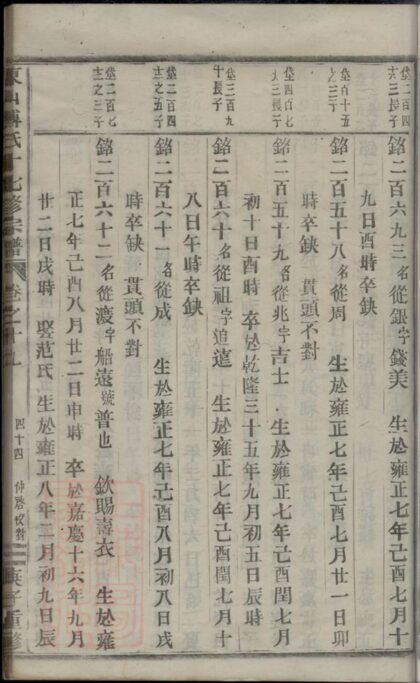 垒二百四
十三長子
銘二百九十三名從銀字錢美　生於雍正七年己酉七月十
九日酉時卒缺
垒二百十五
之三子
銘二百五十八名從周　生於雍正七年己酉七月廿一日卯
時卒缺　貫頭不對
垒四百七
銘二百五十九名從兆字吉士　生於雍正七年己酉閏七月
初十日酉時　卒於乾隆三十五年九月初五日辰時
垒三百九
十長子
銘二百六十名從祖字追遠　生於雍正七年己酉閏七月十
八日午時卒缺
垒二百七
十之五子
銘二百六十一名從成　生於雍正七年己酉八月初八日戌
時卒缺　貫頭不對
垒二百七
十之三子
銘二百六十二名從濩字船遠號普也　欽賜壽衣　生於雍
正七年己酉八月廿二日申時　卒於嘉慶十六年九月
廿二日戌時　娶范氏　生於雍正八年二月初九日辰
東山傅氏十七修宗譜
卷之十九
四十四
仲啓校對
庚子重修